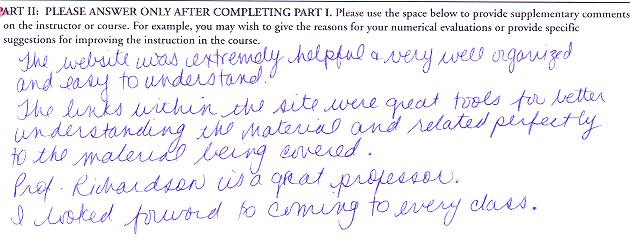 PART II: PLEASE ANSWER ONLY AFTER COMPLETING PART I. Please use the space below to provide supplementary comments
on the instructor or course. For example, you may wish to give the reasons for your numerical evaluations or provide specific
suggestions for improving the instruction in the course.
The website was extremely helpful & very well organized
and easy to understand.
The links within the site were great tools for better
understanding the material and related perfectly
to the material being covered.
Prof. Richardson is a great professor.
I looked forward to coming to every class.